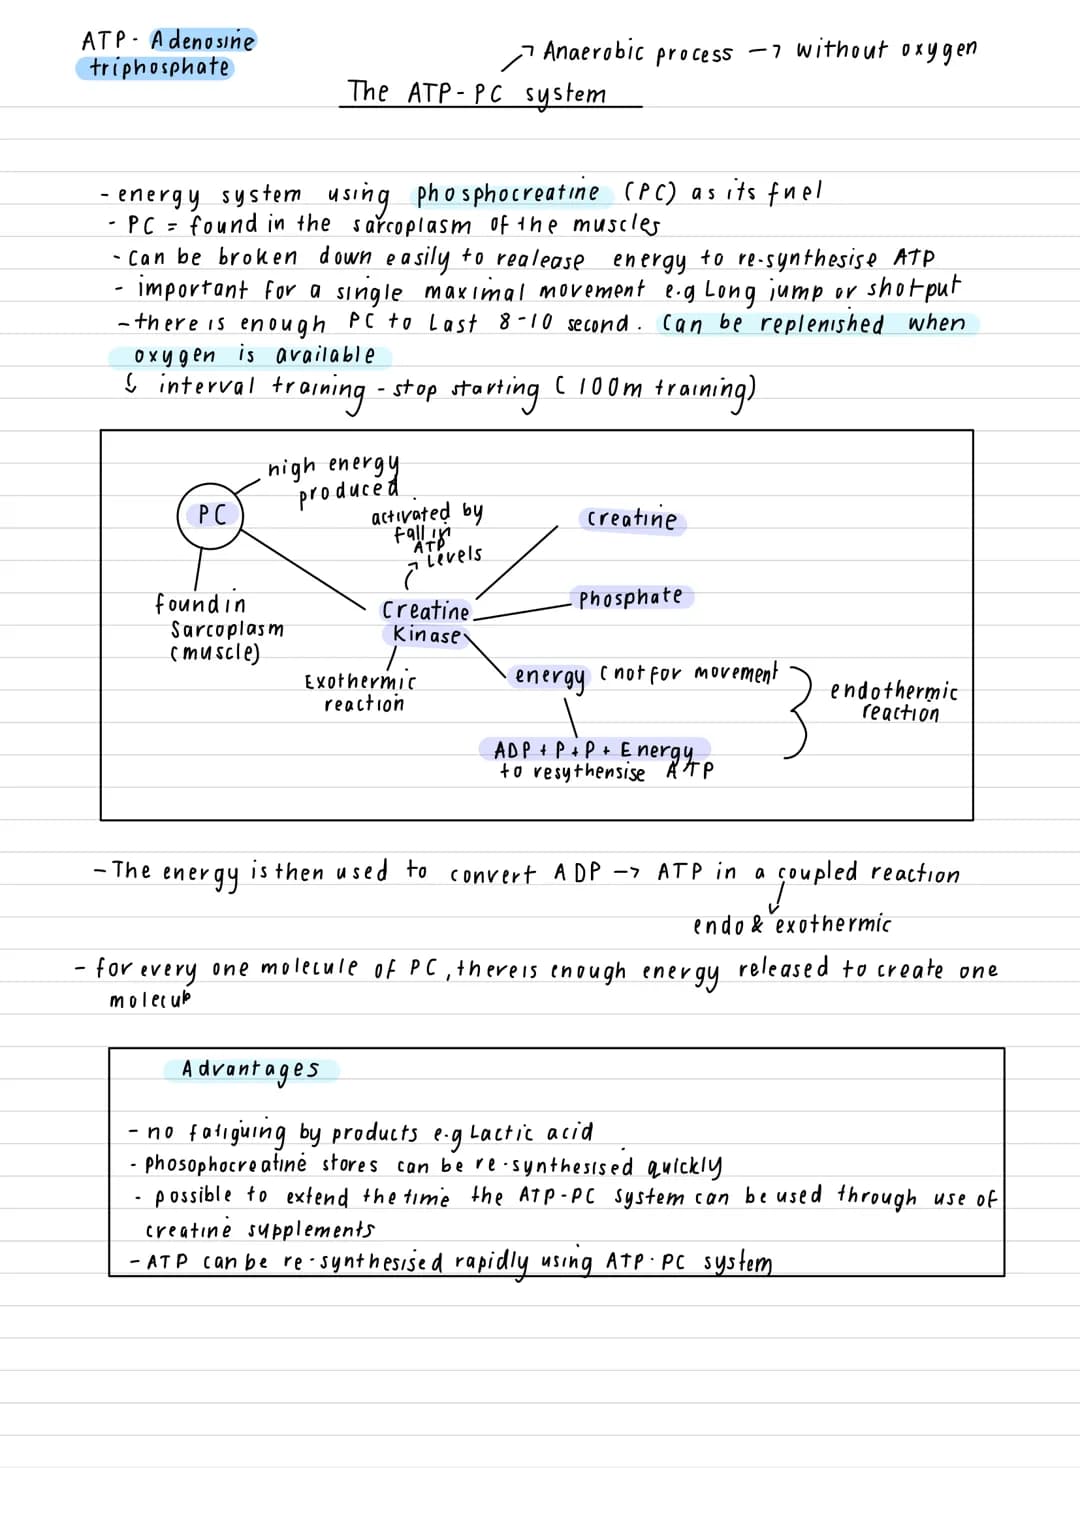 ATP - Adenosine
triphosphate
→ Anaerobic process → without oxygen
The ATP-PC system
- energy system using phosphocreatine (PC) as its fuel
- PC = found in the sarcoplasm of the muscles
- Can be broken down easily to realease energy to re-synthesise ATP
- important for a single maximal movement e.g Long jump or shot-put
- there is enough PC to Last 8-10 second. Can be replenished when
oxygen is available
↳ interval training - stop starting ( 100m training)
high energy
produced
PC
activated by
fall in
ATP
Levels
creatine
found in
Sarcoplasm
(muscle)
Creatine
Kinase
Phosphate
Exothermic
reaction
energy ( not for movement
endothermic
reaction
ADP + P + P + Energy
to resythensise ATP
- The energy is then used to convert ADP → ATP in a coupled reaction
endo & exothermic
- for every one molecule of PC, there is enough energy released to create one
molecule
Advantages
- no fatiguing by products e.g Lactic acid
- phosophocreatine stores can be re-synthesised quickly
- possible to extend the time the ATP-PC system can be used through use of
creatine supplements
- ATP can be re-synthesised rapidly using ATP-PC system